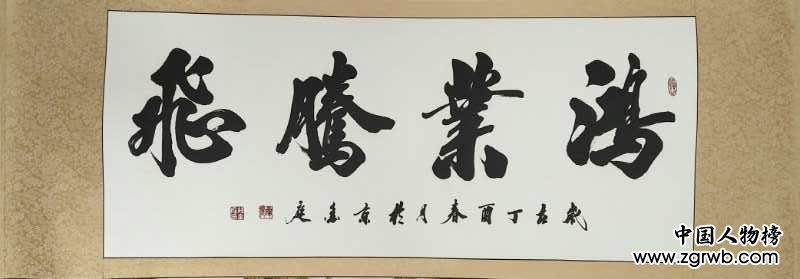 鴻業騰飛
歲在丁酉春月於京
中国人物榜
www.zgrwb.com